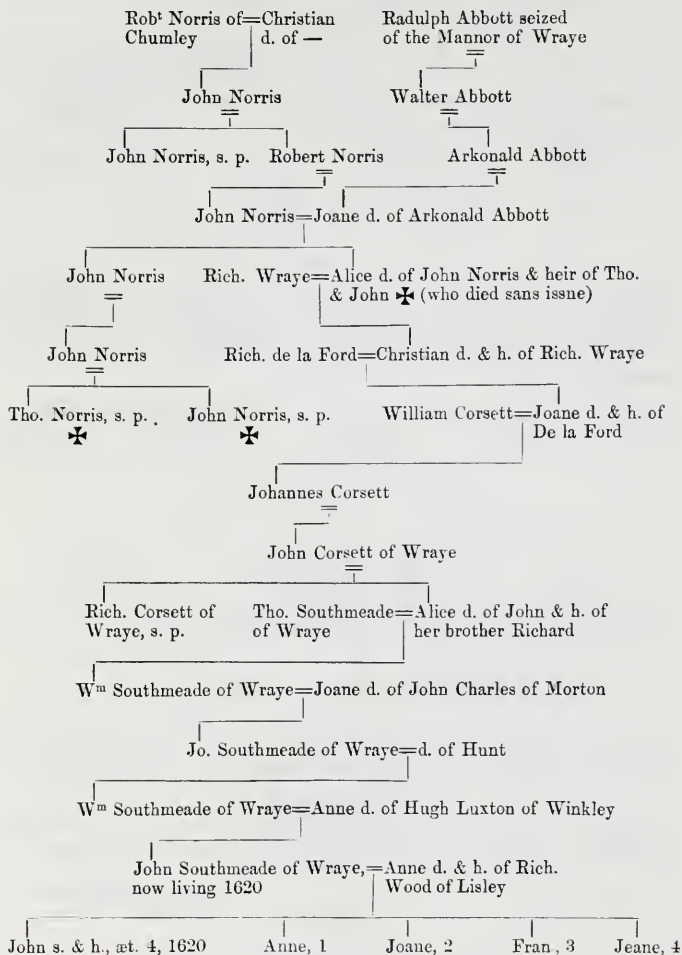 Robᵗ Norris of=Christian
Chumley d. of —
Radulph Abbott seized
of the Mannor of Wraye
John Norris
Walter Abbott
John Norris, s. p.
Robert Norris
Arkonald Abbott
John Norris=Joane d. of Arkonald Abbott
John Norris
Rich. Wraye=Alice d. of John Norris & heir of Tho.
& John ✠ (who died sans issue)
John Norris
Rich. de la Ford=Christian d. & h. of Rich. Wraye
Tho. Norris, s. p.
✠
John Norris, s. p.
✠
William Corsett=Joane d. & h. of
De la Ford
Johannes Corsett
John Corsett of Wraye
Rich. Corsett of
Wraye, s. p.
Tho. Southmeade=Alice d. of John & h. of
of Wraye her brother Richard
Wᵐ Southmeade of Wraye=Joane d. of John Charles of Morton
Jo. Southmeade of Wraye=d. of Hunt
Wᵐ Southmeade of Wraye=Anne d. of Hugh Luxton of Winkley
John Southmeade of Wraye,=Anne d. & h. of Rich.
now living 1620 Wood of Lisley
John s. & h., æt. 4, 1620 Anne, 1 Joane, 2 Fran., 3 Jeane, 4